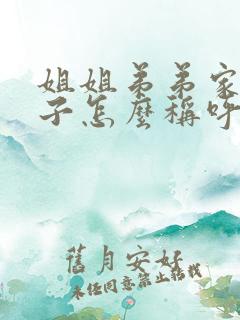 姐姐弟弟家
子怎麼稱呼
舊月安好
未经同意禁止转载